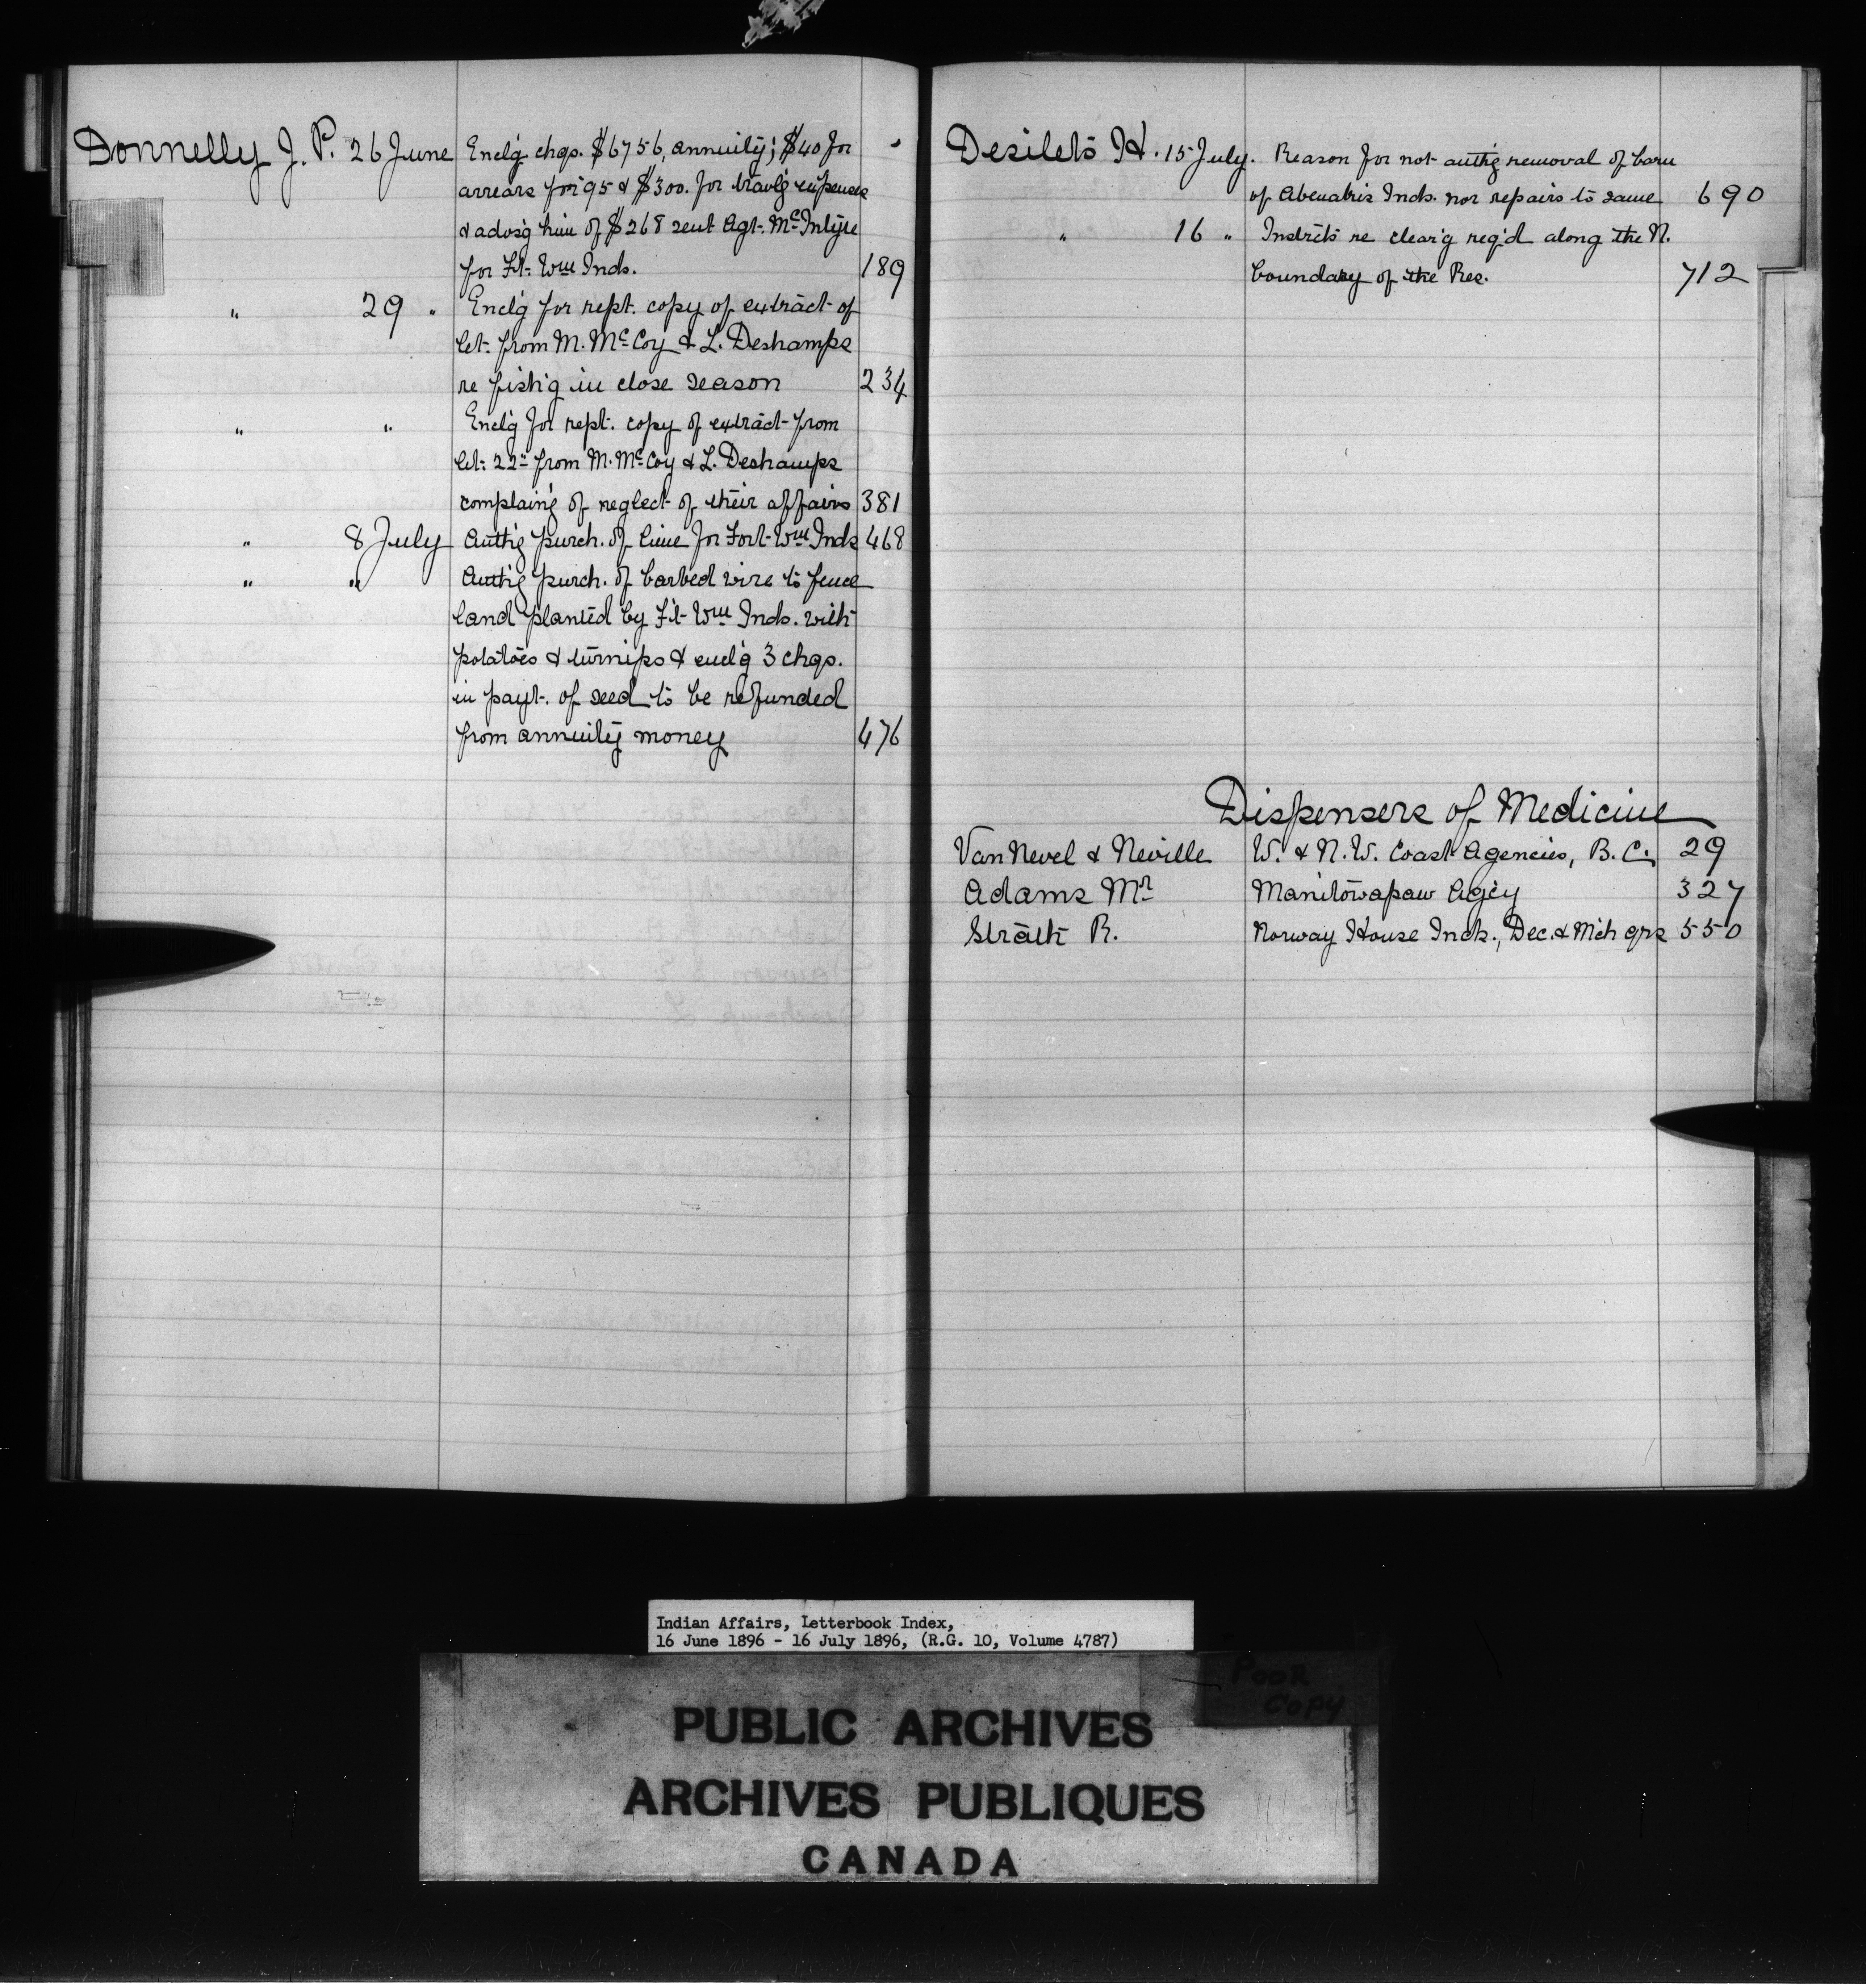 Donnelly J. P. 26 June Encl'g chqs. $6756, annuity; $40 for
arrears for '95 & $300. for travl'g expenses
& advis'g him of $268 sent Agt. McIntyre
for Ft. Wm Inds. 189
" 29 " Encl'g for rept. copy of extract of
let. from M. McCoy & L. Deshamps
re fish'g in close season 234
" " Encl'g for rept. copy of extract from
let. 22" from M. McCoy & L. Deshamps
complain'g of neglect of their affairs 381
" 8 July Auth'g purch. of lime for Fort Wm Inds 468
" " Auth'g purch. of barbed wire to fence
land planted by Ft Wm Inds. with
potatoes & turnips & encl'g 3 chqs.
in payt. of seed to be refunded
from annuity money 476
Desilets H. 15 July. Reason for not auth'g removal of barn
of Abenakis Inds. nor repairs to same 690
" 16 " Instrcts re clear'g req'd along the N.
boundary of the Res. 712
Dispensers of Medicine
Van Nevel & Neville W. & N.W. Coast Agencies, B.C. 29
Adams Mr Manitowapaw Agcy 327
Strath R. Norway House Inds., Dec. & Mch qrs 550
Indian Affairs, Letterbook Index,
16 June 1896 - 16 July 1896, (R.G. 10, Volume 4787)
POOR
COPY
PUBLIC ARCHIVES
ARCHIVES PUBLIQUES
CANADA